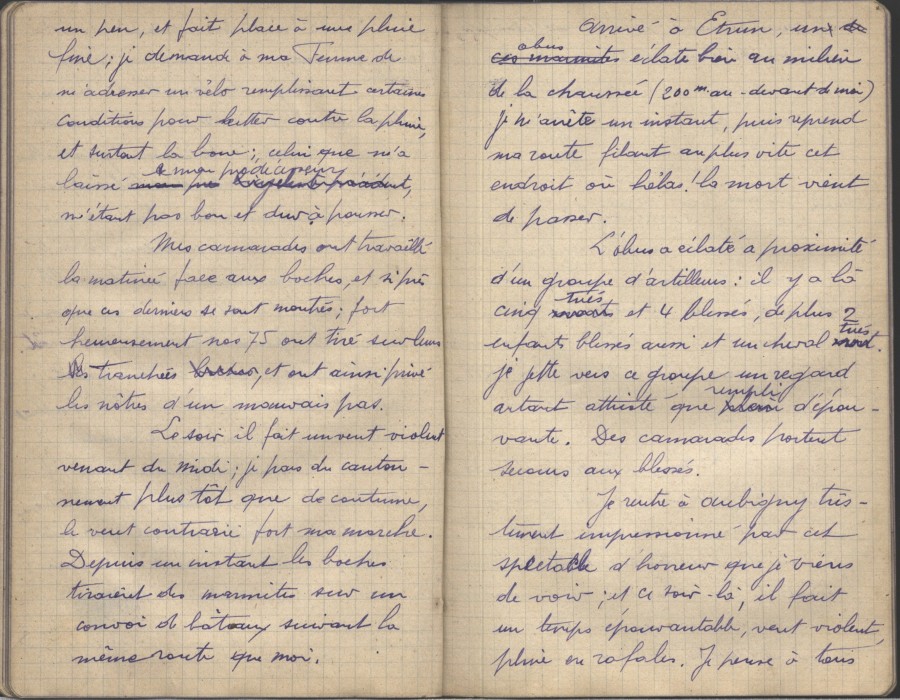 un peu, et fait place à une pluie
fine; je demande à ma Femme de
m'adresser un vélo remplissant certaines
conditions pour lutter contre la pluie,
et surtout la boue; celui que m'a
laissé mon prédécesseur,
n'étant pas bon et dur à pousser.
Mes camarades ont travaillé
la matinée face aux boches, et si près
que ces derniers se sont montrés; fort
heureusement nos 75 ont tiré sur leurs
tranchées, et ont ainsi privé
les nôtres d'un mauvais pas.
Le soir il fait un vent violent
venant du midi; je pars du canton-
nement plus tôt que de coutume,
le vent contrarie fort ma marche.
Depuis un instant les boches
tiraient des marmites sur un
convoi de bâteaux suivant la
même route que moi.
Arrivé à Etrun, un
obus
ces marmites éclate bien au milieu
de la chaussée (200m au-devant de moi)
je m'arrête un instant, puis reprend
ma route filant au plus vite cet
endroit où hélas! la mort vient
de passer.
L'obus a éclaté a proximité
d'un groupe d'artilleurs: il y a là
tués
cinq morts et 4 blessés, de plus 2
enfants blessés aussi et un cheval tués
mort.
je jette vers ce groupe un regard
rempli
autant attristé que d'épou-
vante. Des camarades portent
secours aux blessés.
Je rentre à Aubigny très-
tement impressionné par cet
spectacle d'horreur que je viens
de voir; et ce soir-là, il fait
un temps épouvantable, vent violent,
pluie en rafales. Je pense à tous